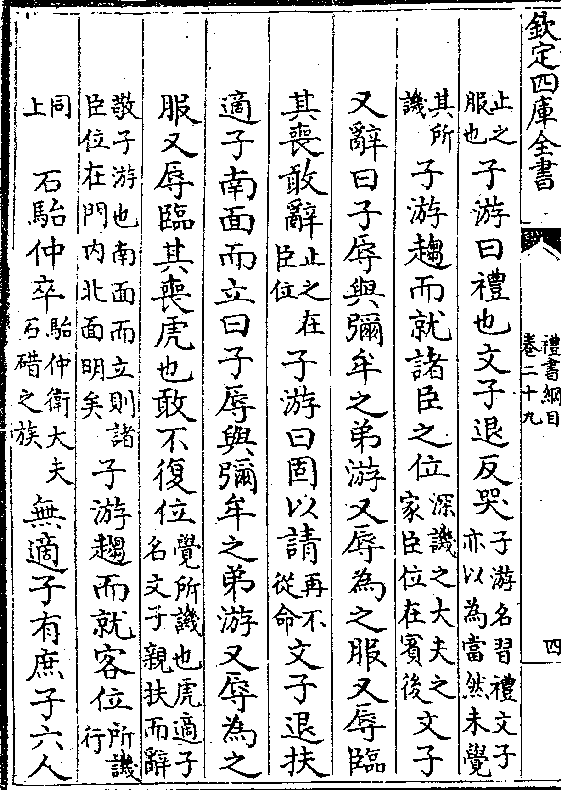 欽定四庫全書
禮書綱目
卷二十九
四
止之
服也子游曰禮也文子退反哭子游名習禮文子
亦以為當然未覺
其所
譏子游趨而就諸臣之位深譏之大夫之
家臣位在賓後文子
又辭曰子辱與彌牟之弟游又辱為之服又辱臨
其喪敢辭止之在
臣位子游曰固以請再不
從命文子退扶
適子南面而立曰子辱與彌牟之弟游又辱為之
服又辱臨其喪虎也敢不復位覺所譏也虎適子
名文子親扶而辭
敬子游也南面而立則諸
臣位在門内北面明矣子游趨而就客位所譏
行
同
上石駘仲卒駘仲衛大夫
石碏之族無適子有庶子六人